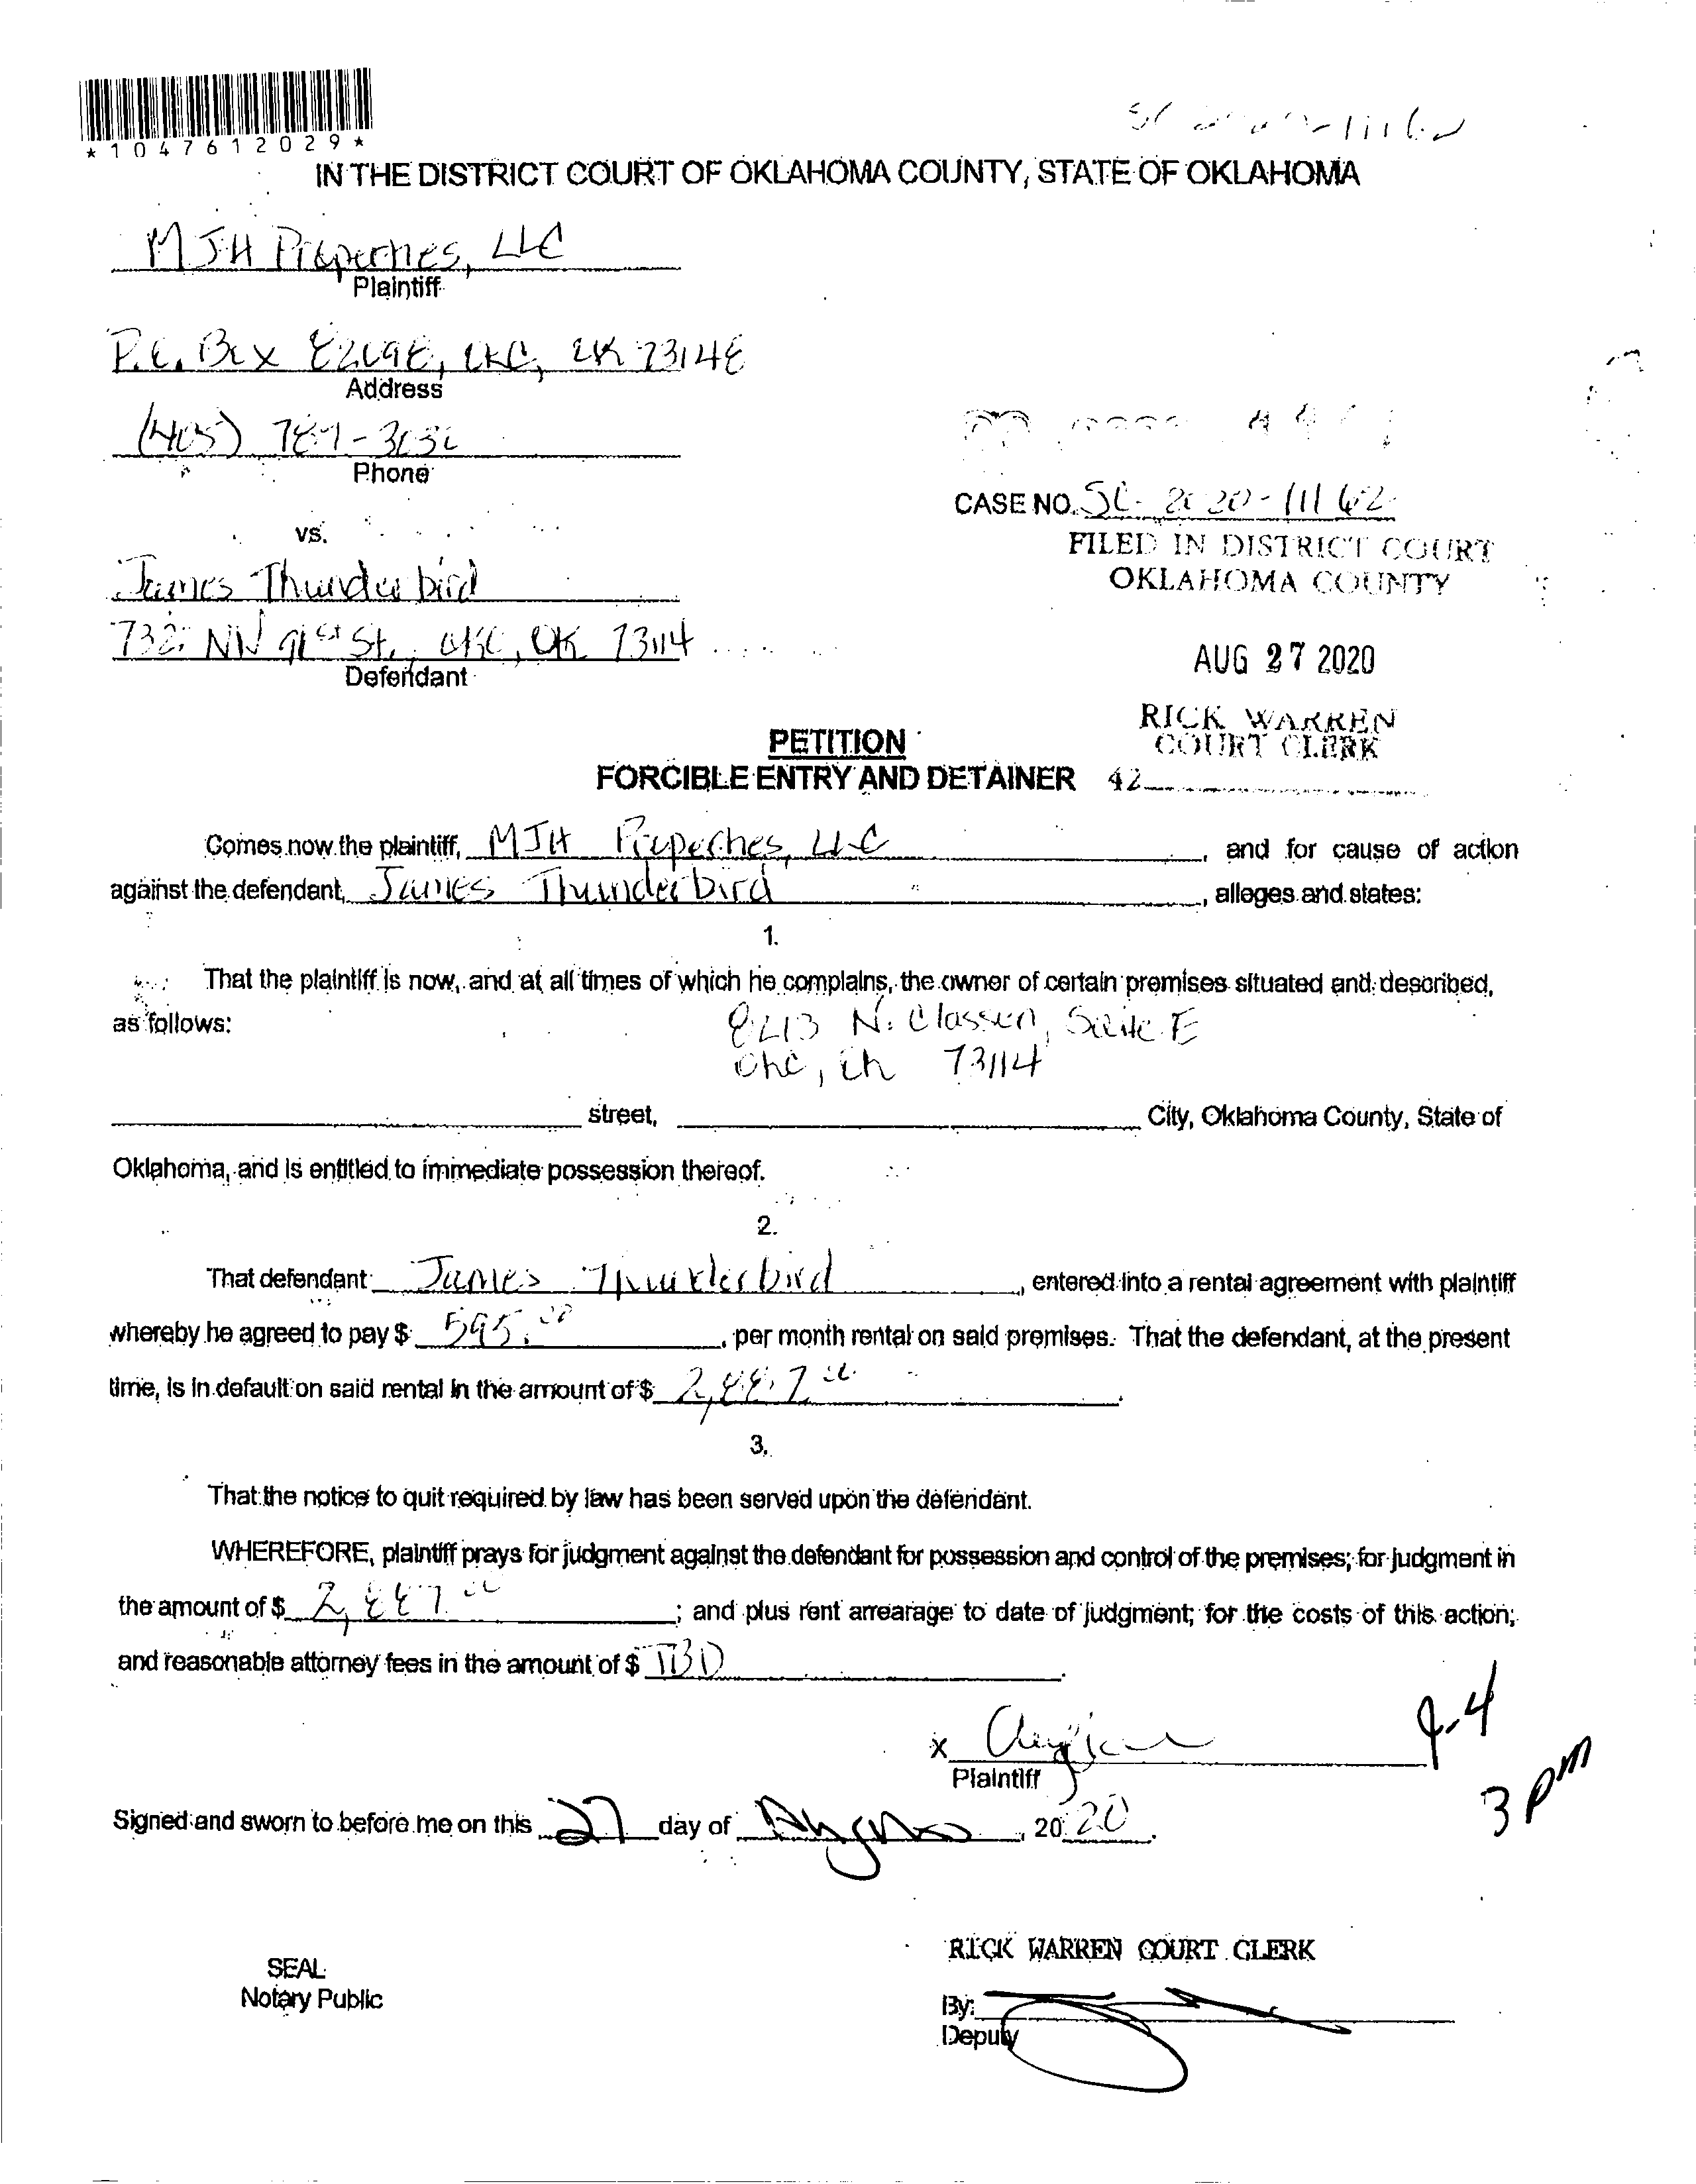 *1047612029*
IN THE DISTRICT COURT OF OKLAHOMA COUNTY, STATE OF OKLAHOMA
MJH Properties, LLC
Plaintiff
P.O. Box OKC, OK 73148
Address
(405)
Phone
CASE NO. SC-2020-11162
vs.
FILED IN DISTRICT COURT
OKLAHOMA COUNTY
James Thunderbird
732 NW 91st St., OKC, OK 73114
Defendant
AUG 27 2020
RICK WARREN
COURT CLERK
PETITION
FORCIBLE ENTRY AND DETAINER 42
Comes now the plaintiff, MJH Properties, LLC, and for cause of action
against the defendant, James Thunderbird, alleges and states:
1.
That the plaintiff is now, and at all times of which he complains, the owner of certain premises situated and described,
as follows: N. Classen, Suite E
OKC, OK 73114
street, City, Oklahoma County, State of
Oklahoma, and is entitled to immediate possession thereof.
2.
That defendant James Thunderbird, entered into a rental agreement with plaintiff
whereby he agreed to pay $ 595.00, per month rental on said premises. That the defendant, at the present
time, is in default on said rental in the amount of $ 2,887.00.
3.
That the notice to quit required by law has been served upon the defendant.
WHEREFORE, plaintiff prays for judgment against the defendant for possession and control of the premises; for judgment in
the amount of $ 2,887.00; and plus rent arrearage to date of judgment; for the costs of this action;
and reasonable attorney fees in the amount of $ TBD.
X
Plaintiff
3 pm
Signed and sworn to before me on this 27 day of August, 2020.
RICK WARREN COURT CLERK
SEAL
Notary Public
By:
Deputy